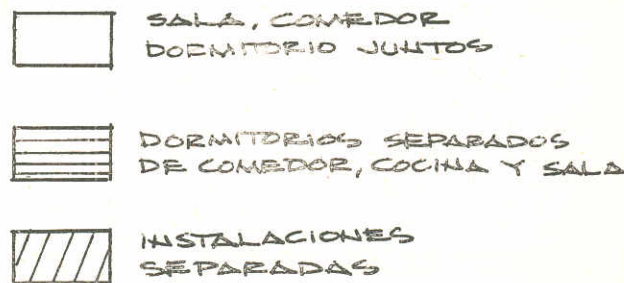 SALA, COMEDOR
DORMITORIO JUNTOS
DORMITORIOS SEPARADOS
DE COMEDOR, COCINA Y SALA
INSTALACIONES
SEPARADAS